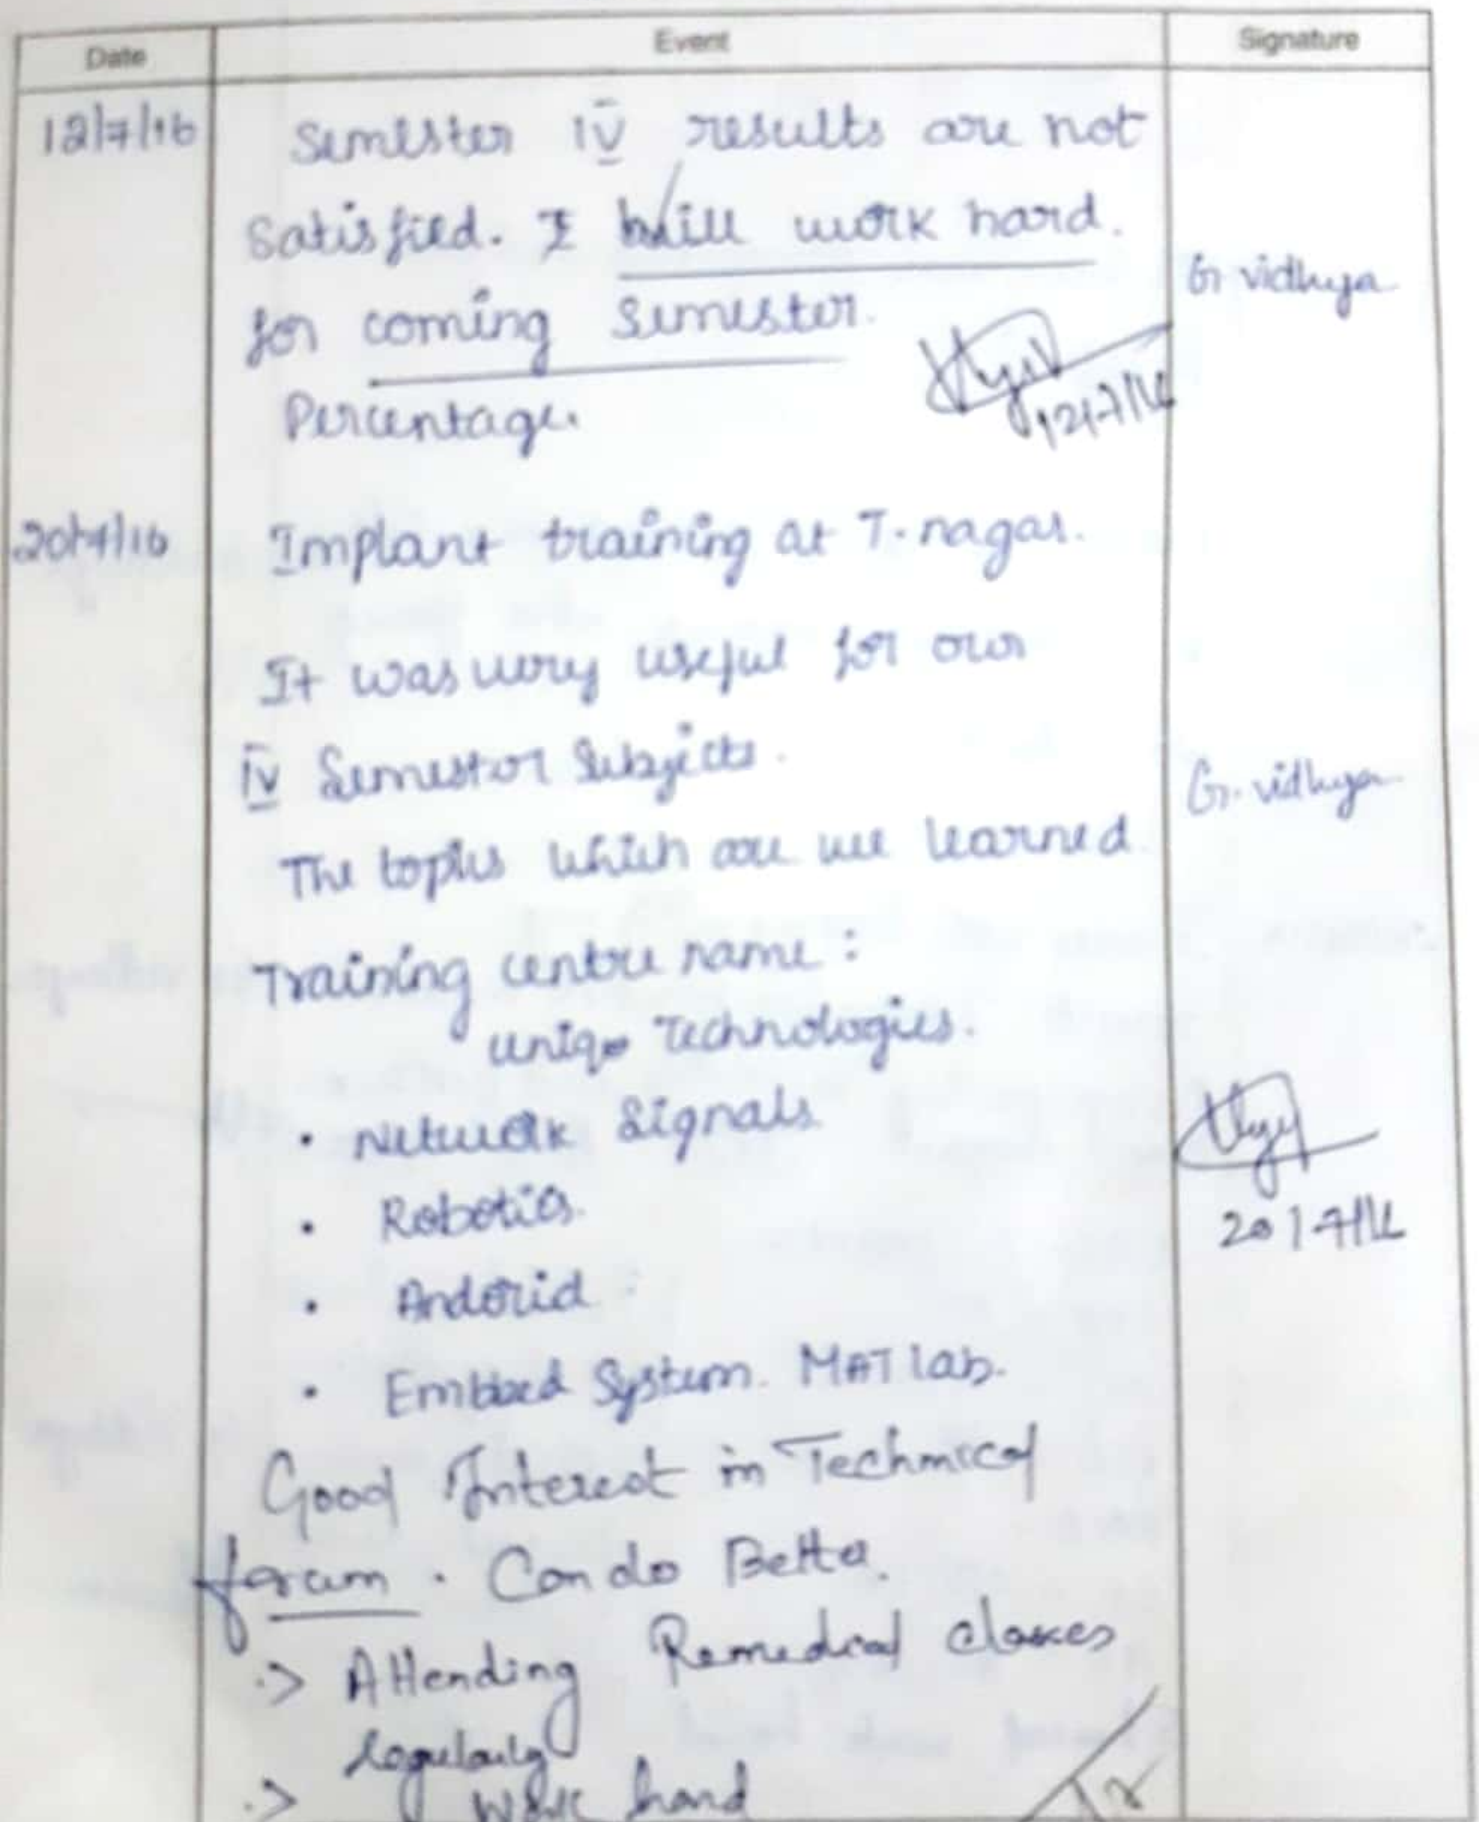 Date Event Signature
12/7/16 Semester IV results are not
Satisfied. I will work hard.
G. vidhya
for coming Semester.
12/7/16
Percentage.
20/7/16 Implant training at T. nagar.
It was very useful for our
IV Semestor Subjects.
G. vidhya
The topics which are we learned
Training centre name :
uniqe Technologies.
• Network Signals
• Robotics.
20/7/16
• Andorid
• Embbed System. MAT lab.
Good Interest in Technical
forum. Can do Better.
.> Attending Remedical classes
regularly
.> Work hard